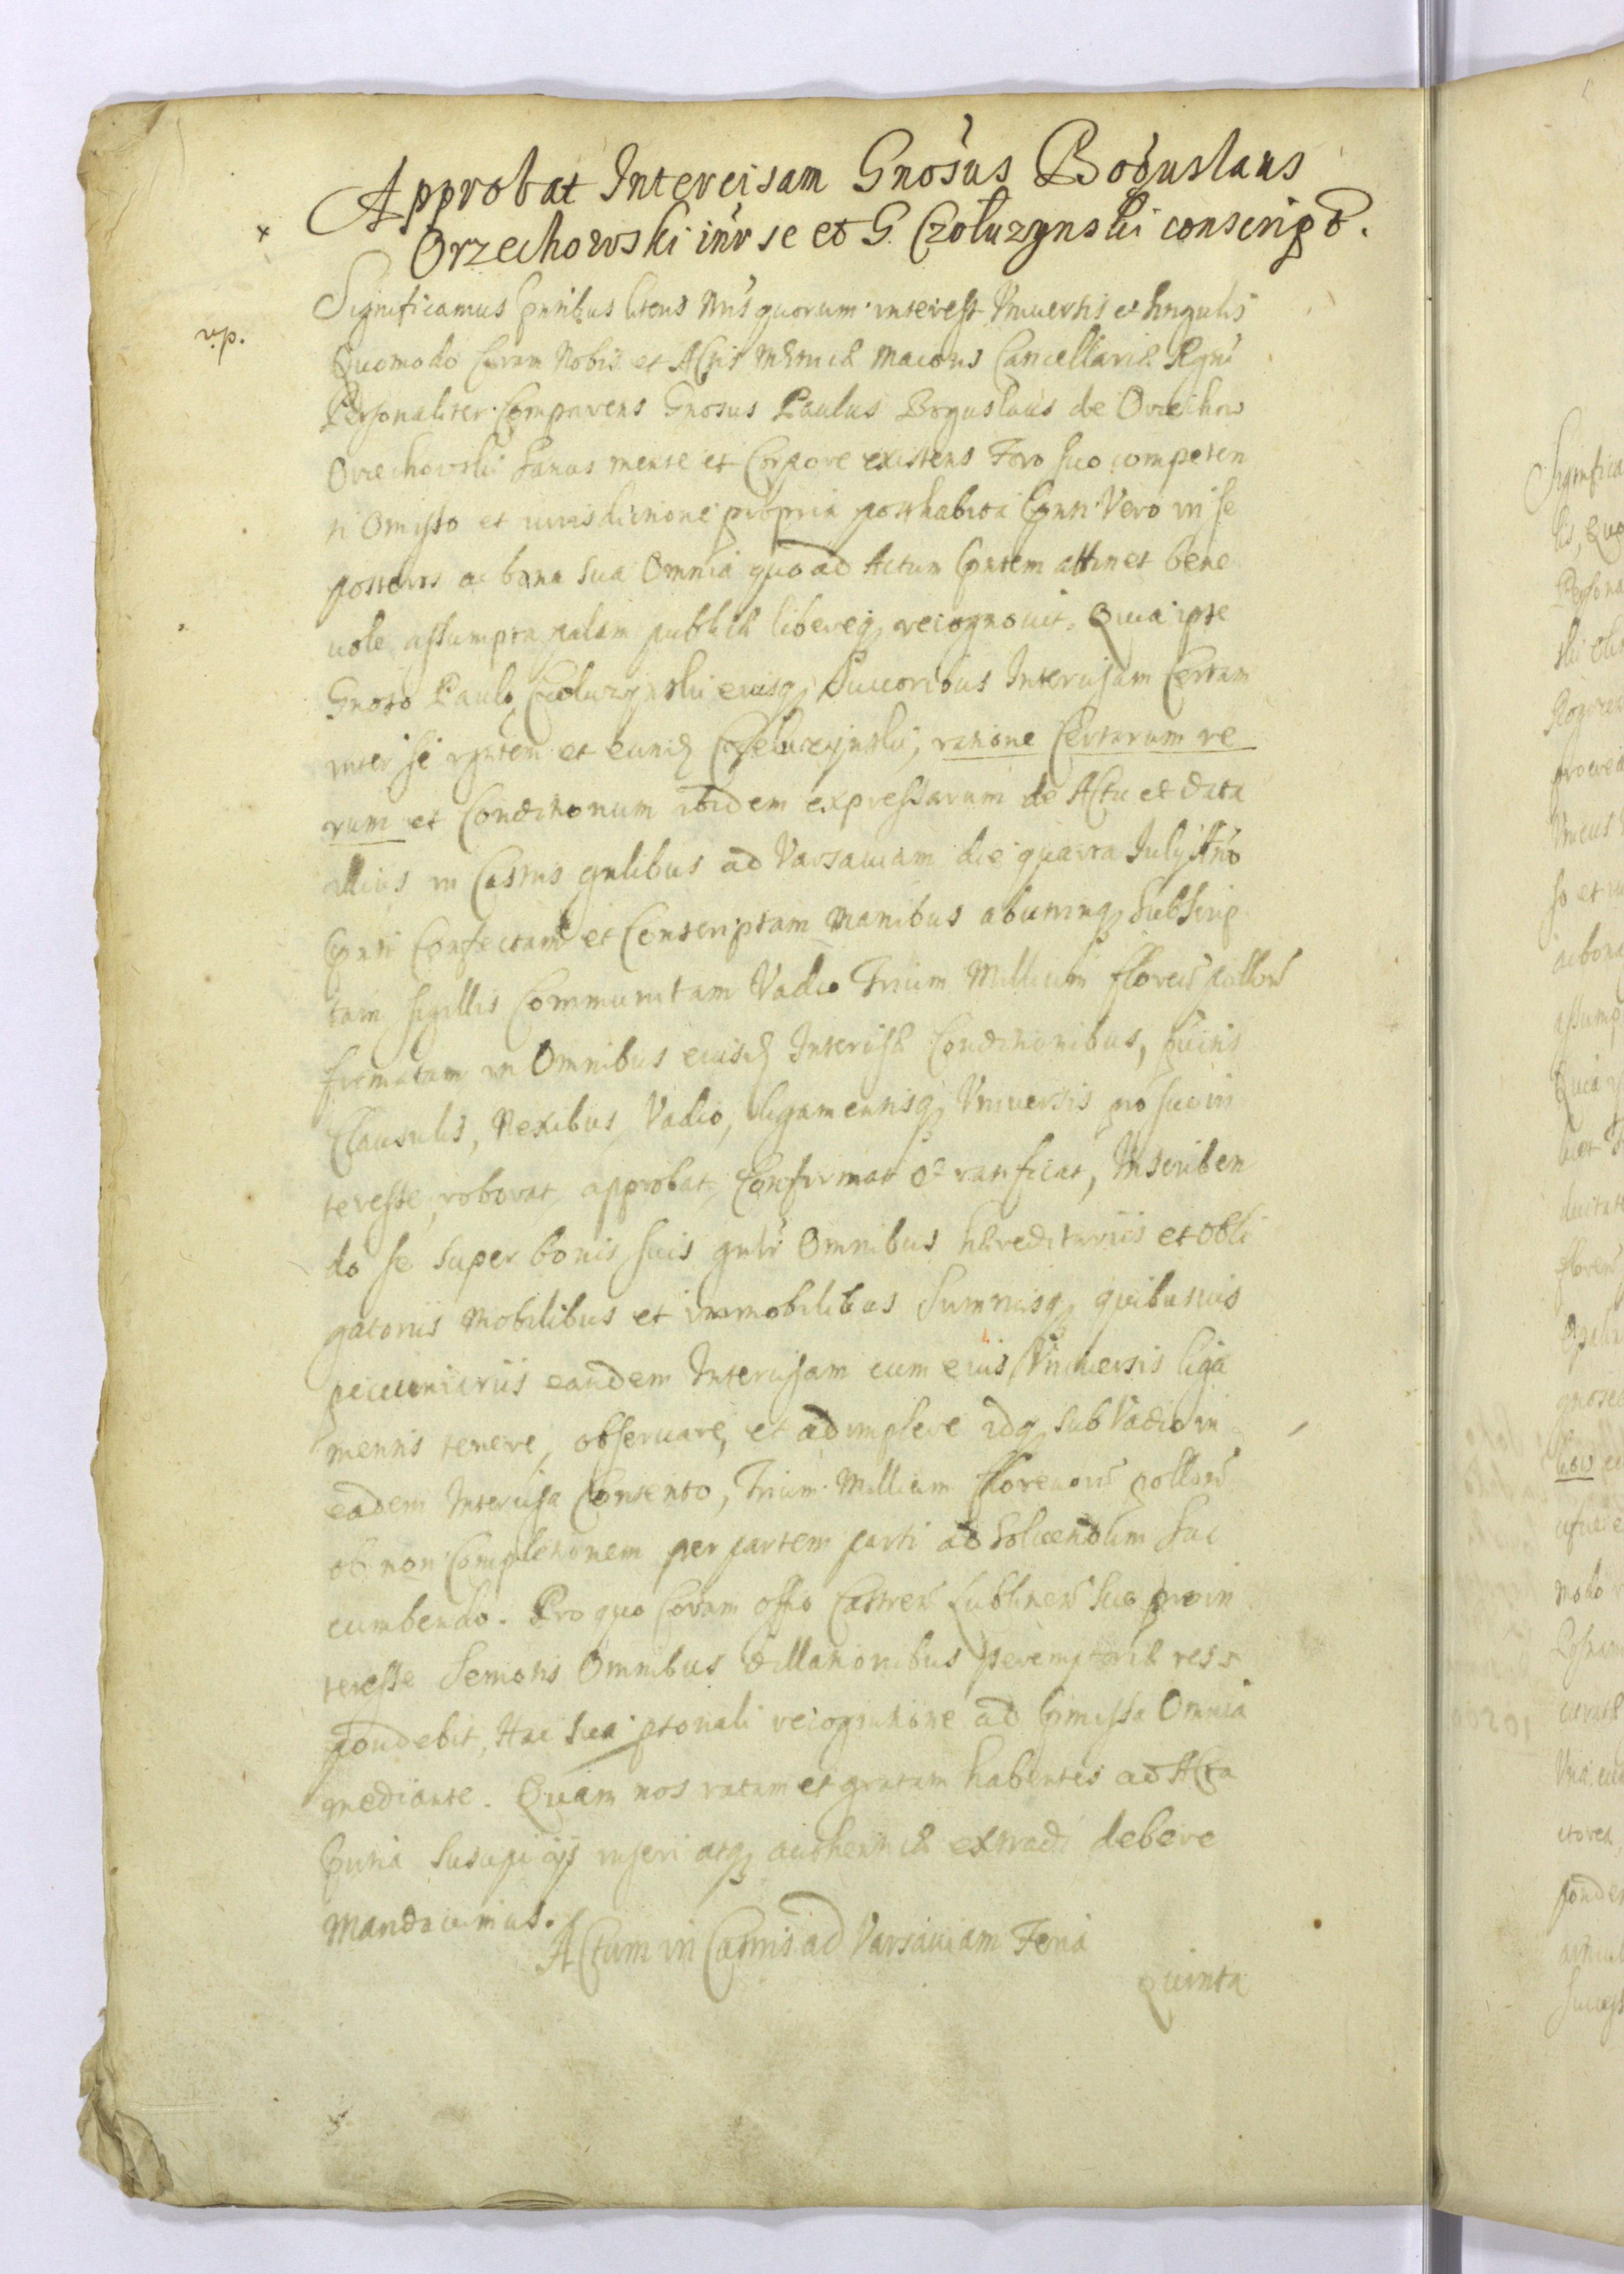 Approbat Intercisam Gnosus Boguslaus
Orzechowski intr se et G. Czoluzynski conscript.
Significamus pntibus literis nris quorum interest Vniuersis et singulis
v.p.
Quomodo Coram Nobis et Actis Mtricæ Maioris Cancellariæ Regni
Personaliter Comparens Gnosus Paulus Boguslaus de Orzechow
Orzechowski sanus mente et Corpore existens Foro suo competen
ti Omisso et iurisdictione propria posthabita pnti Vero in se
posteros ac bona sua Omnia quoad Actum pntem attinet bene
uole assumpta palam publicè libereq recognouit. Quia ipse
Gnoso Paulo Czoluzynski eiusq Succoribus Intercisam Certam
inter se rgntem et eund Czoluzynski, ratione Certarum re
rum et Conditionum ibidem expressarum de Actu et data
illius in Castris gnlibus ad Varsauiam die quarta Julij Anno
pnti Confectam et Conscriptam Manibus abutrinq Subscrip
tam sigillis Communitam Vadio Trium Millium floren pollon
firmatam in Omnibus eiusd Intercisæ Conditionibus, punctis
Clausulis, Nexibus, Vadio, ligamentisq Vniuersis pro suo in
teresse, roborat, approbat, Confirmat et ratificat, Inscriben
do se super bonis suis gnlr Omnibus hæreditariis et obli
gatoriis Mobilibus et immobilibus Summisq quibusuis
pecuniariis eandem Intercisam cum eius Vniuersis liga
mentis tenere, obseruare, et adimplere idq sub Vadio in
eadem Intercisa Contento, Trium Millium florenor pollon
ob non Completionem per partem parti ad soluendum suc
cumbendo. Pro quo Coram offo Castren Lublinen suo pro in
teresse Semotis Omnibus dillationibus peremptoriè res
pondebit, Hac sua psonali recognitione ad pmissa Omnia
mediante. Quam nos ratam et gratam habentes ad Acta
pntia suscipi ijs inseri atq authenticè extradi debere
Mandauimus.
Actum in Castris ad Varsauiam Feria
Quinta